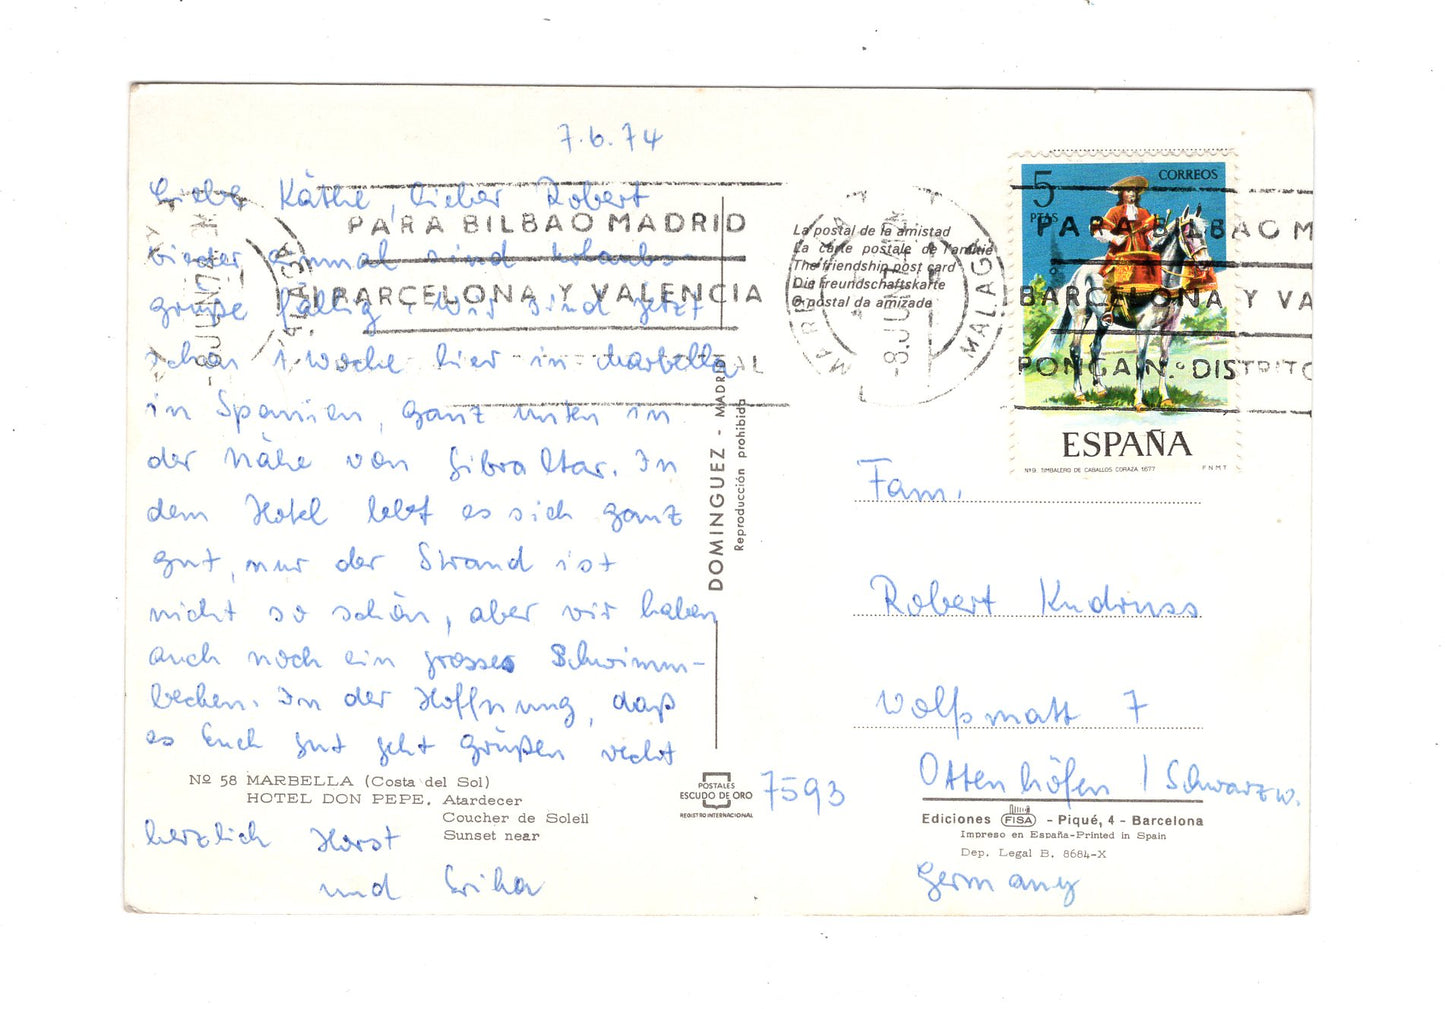 7.6.74
Liebe Käthe, lieber Robert
wieder einmal sind Urlaubs-
grüße fällig. Wir sind jetzt
schon 1 Woche hier in Marbella
in Spanien, ganz unten in
der Nähe von Gibraltar. In
dem Hotel lebt es sich ganz
gut, nur der Strand ist
nicht so schön, aber wir haben
auch noch ein grosses Schwimm-
becken. In der Hoffnung, daß
es Euch gut geht grüßen recht
herzlich Horst
und Erika
No 58 MARBELLA (Costa del Sol)
HOTEL DON PEPE. Atardecer
Coucher de Soleil
Sunset near
PARA BILBAO MADRID
BARCELONA Y VALENCIA
MARBELLA
-8 JUN 74
MALAGA
DOMINGUEZ - MADRID
Reproducción prohibida
POSTALES
ESCUDO DE ORO
REGISTRO INTERNACIONAL
La postal de la amistad
La carte postale de l'amitié
The friendship post card
Die Freundschaftskarte
O postal da amizade
MALAGA
-8 JUN
5
PTAS
CORREOS
PARA BILBAO M
BARCELONA Y VA
PONGA N.º DISTRITO
ESPAÑA
Nº9 TIMBALERO DE CABALLOS CORAZA 1677
F N M T
Fam.
Robert Kndruss
Wolfsmatt 7
7593 Ottenhöfen / Schwarzw.
Germany
Ediciones FISA - Piqué, 4 - Barcelona
Impreso en España-Printed in Spain
Dep. Legal B. 8684-X